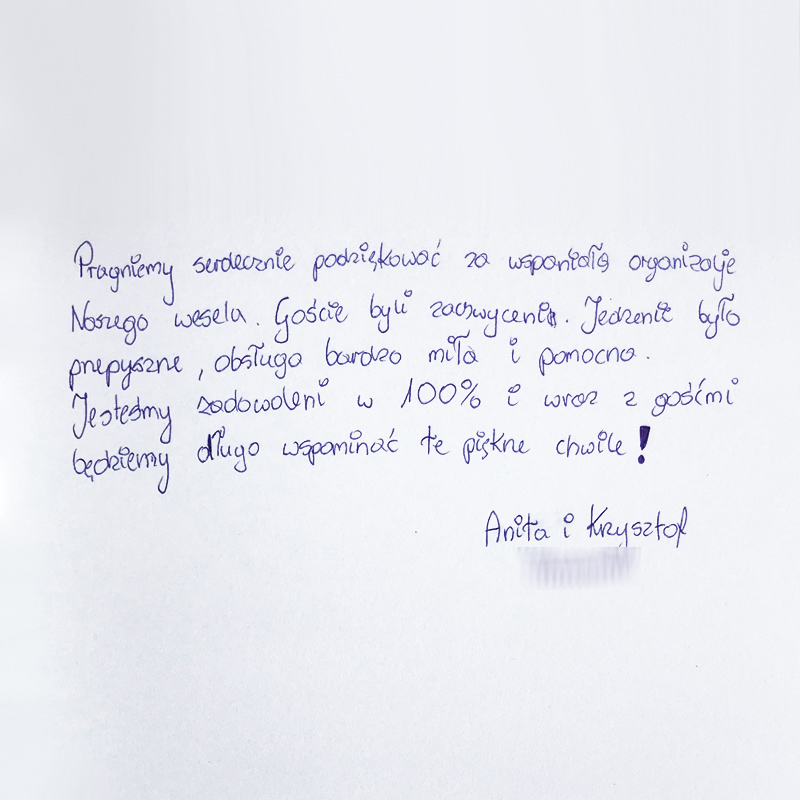 Pragniemy serdecznie podziękować za wspaniałą organizację
Naszego wesela. Goście byli zachwyceni. Jedzenie było
przepyszne, obsługa bardzo miła i pomocna.
Jesteśmy zadowoleni w 100% i wraz z gośćmi
będziemy długo wspominać te piękne chwile!
Anita i Krzysztof